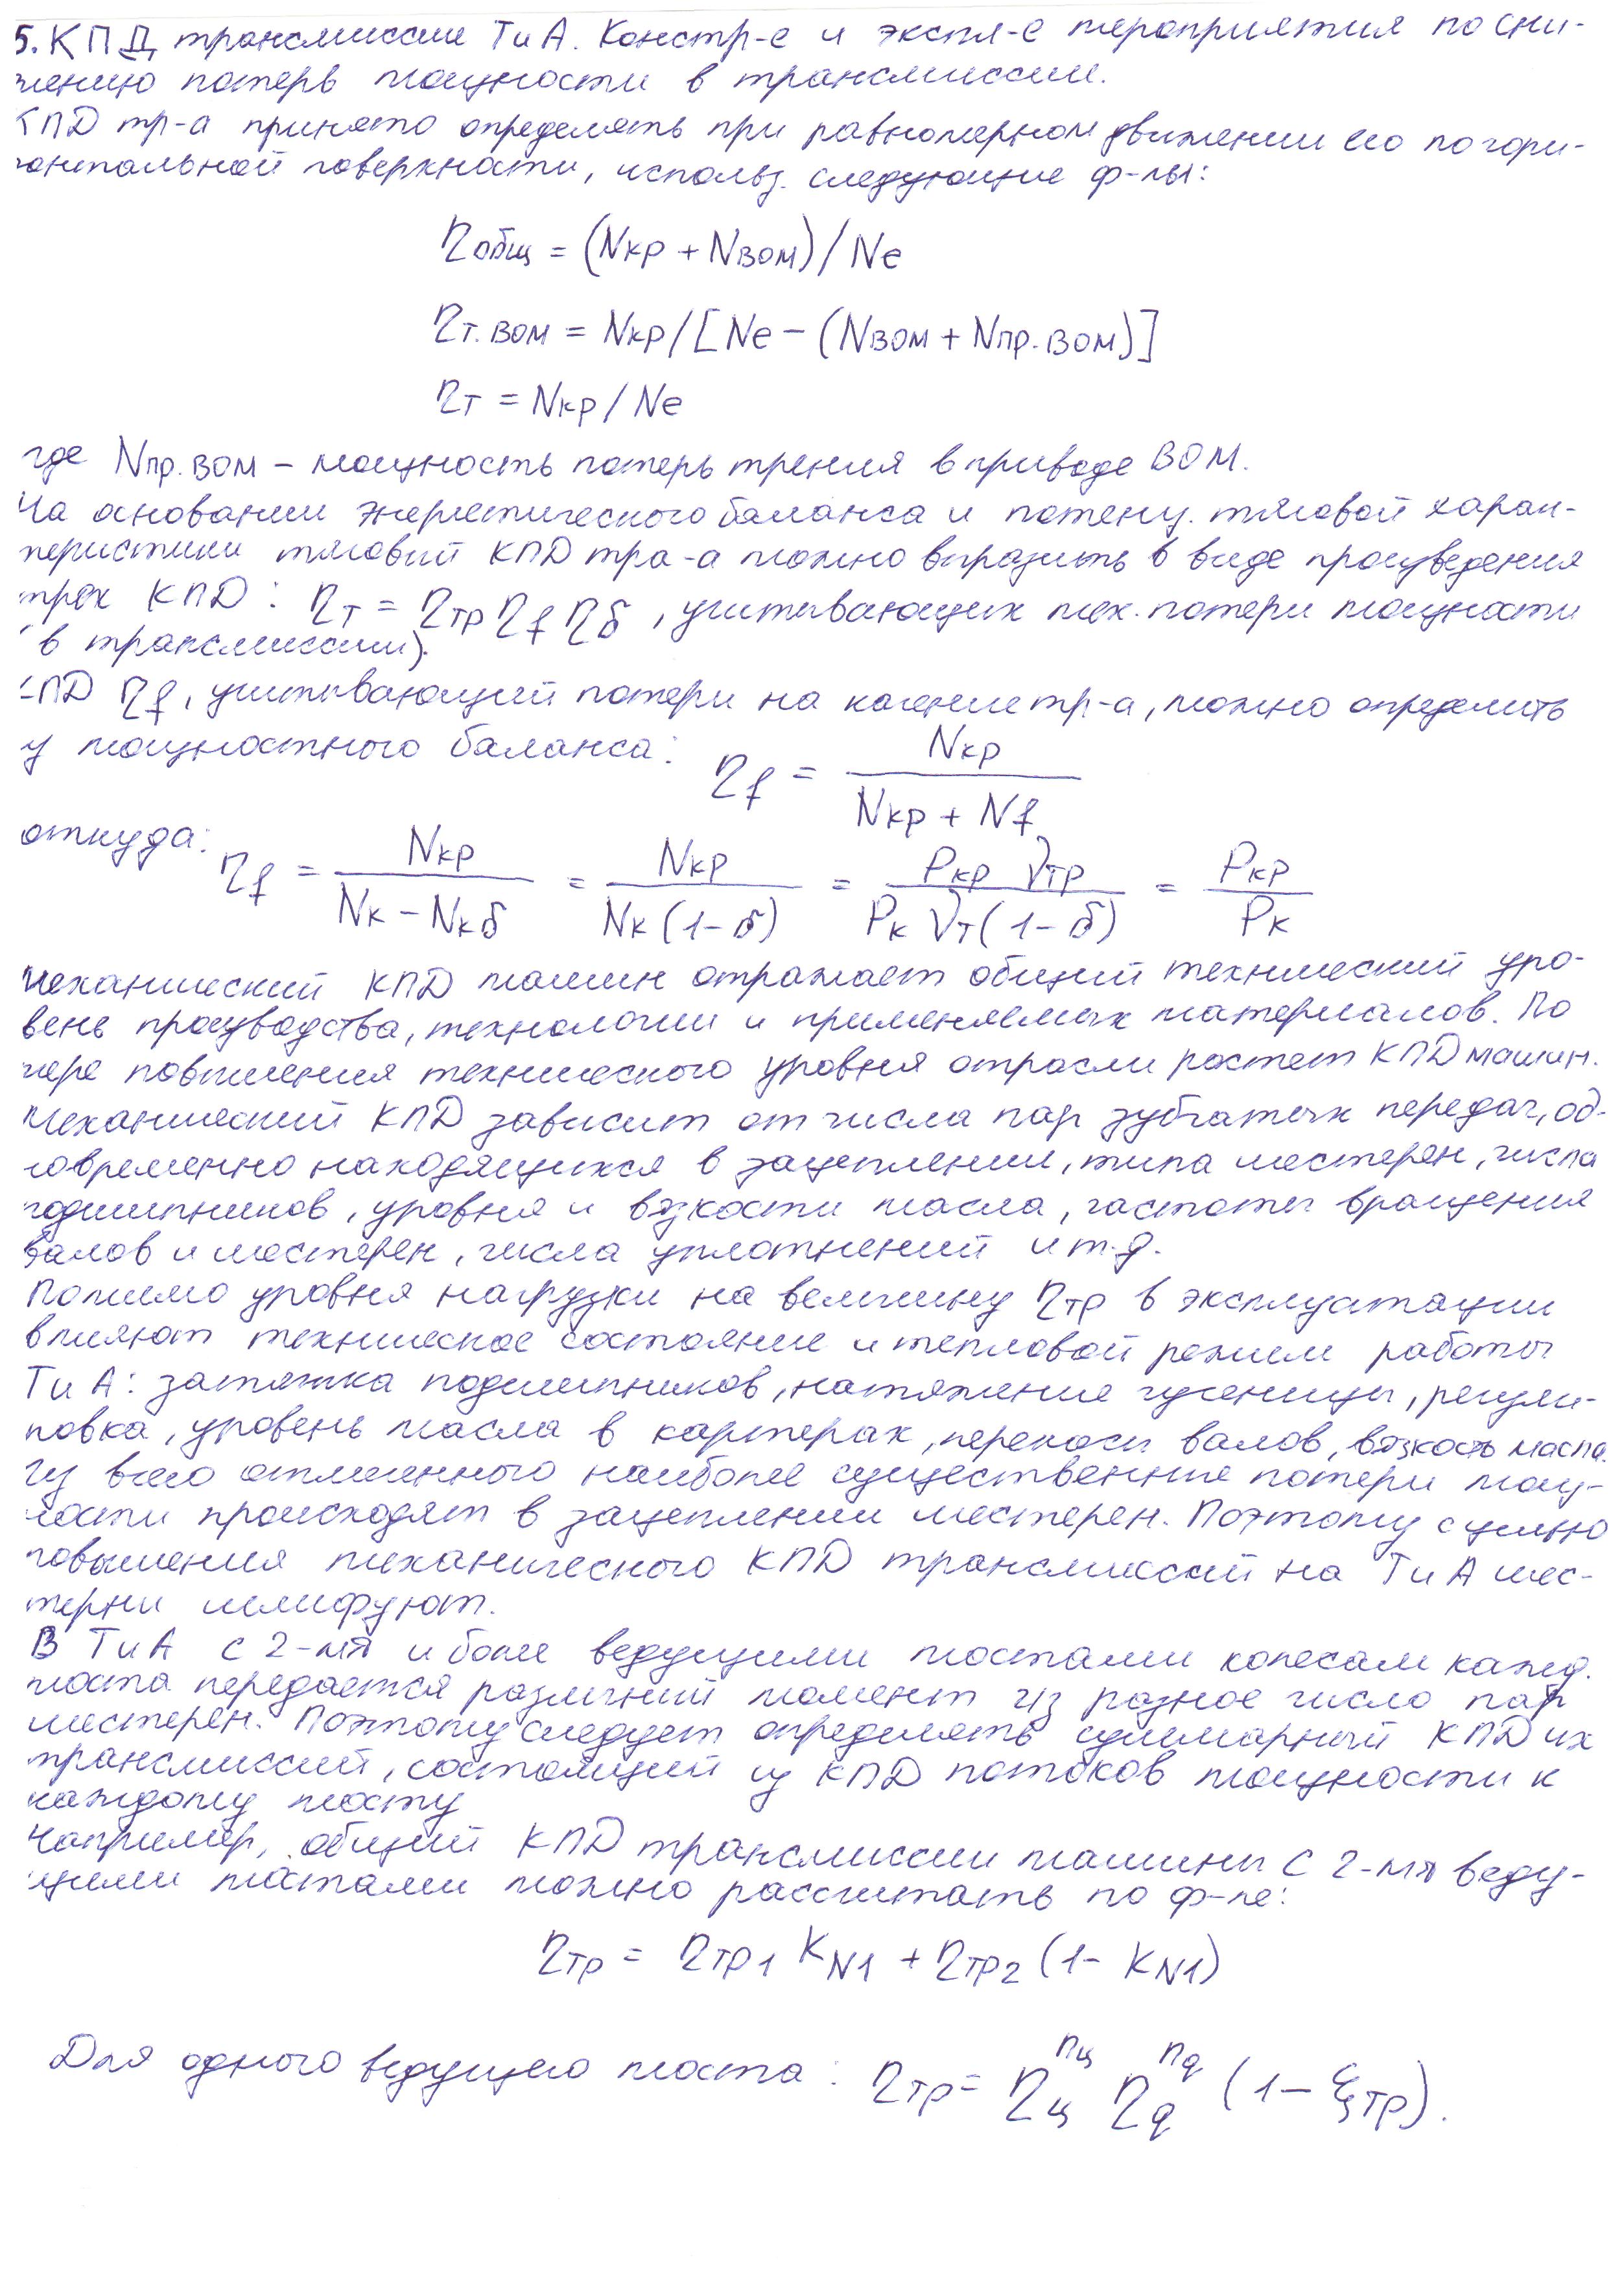 5. КПД трансмиссии ТиА. Констр-е и экспл-е мероприятия по сни-
жению потерь мощности в трансмиссии.
КПД тр-а принято определять при равномерном движении его по гори-
зонтальной поверхности, использ. следующие ф-лы:
ηобщ = (Nкр + NВОМ) / Ne
ηт.вом = Nкр / [Ne − (NВОМ + Nпр.ВОМ)]
ηт = Nкр / Ne
где Nпр.ВОМ – мощность потерь трения в приводе ВОМ.
На основании энергетического баланса и потенц. тяговой харак-
теристики тяговый КПД тра-а можно выразить в виде произведения
трех КПД: ηт = ηтр ηf ηδ, учитывающих мех. потери мощности
в трансмиссии).
КПД ηf, учитывающий потери на качение тр-а, можно определить
из мощностного баланса: ηf = Nкр / (Nкр + Nf)
откуда: ηf = Nкр / (Nк − Nкδ) = Nкр / (Nк (1−δ)) = Pкр Vтр / (Pк Vт (1−δ)) = Pкр / Pк
Механический КПД машин отражает общий технический уро-
вень производства, технологии и применяемых материалов. По
мере повышения технического уровня отрасли растет КПД машин.
Механический КПД зависит от числа пар зубчатых передач, од-
новременно находящихся в зацеплении, типа шестерен, числа
подшипников, уровня и вязкости масла, частоты вращения
валов и шестерен, числа уплотнений и т.д.
Помимо уровня нагрузки на величину ηтр в эксплуатации
влияют техническое состояние и тепловой режим работы
ТиА: затяжка подшипников, натяжение гусеницы, регули-
ровка, уровень масла в картерах, перекосы валов, вязкость масла.
Из всего отмеченного наиболее существенные потери мощ-
ности происходят в зацеплении шестерен. Поэтому с целью
повышения механического КПД трансмиссий на ТиА шес-
терни шлифуют.
В ТиА с 2-мя и более ведущими мостами колесам кажд.
моста передается различный момент ч/з разное число пар
шестерен. Поэтому следует определять суммарный КПД их
трансмиссий, состоящий из КПД потоков мощности к
каждому мосту
Например, общий КПД трансмиссии машины с 2-мя веду-
щими мостами можно рассчитать по ф-ле:
ηтр = ηтр1 KN1 + ηтр2 (1− KN1)
Для одного ведущего моста: ηтр = ηц^nц ηq^nq (1− ξтр).